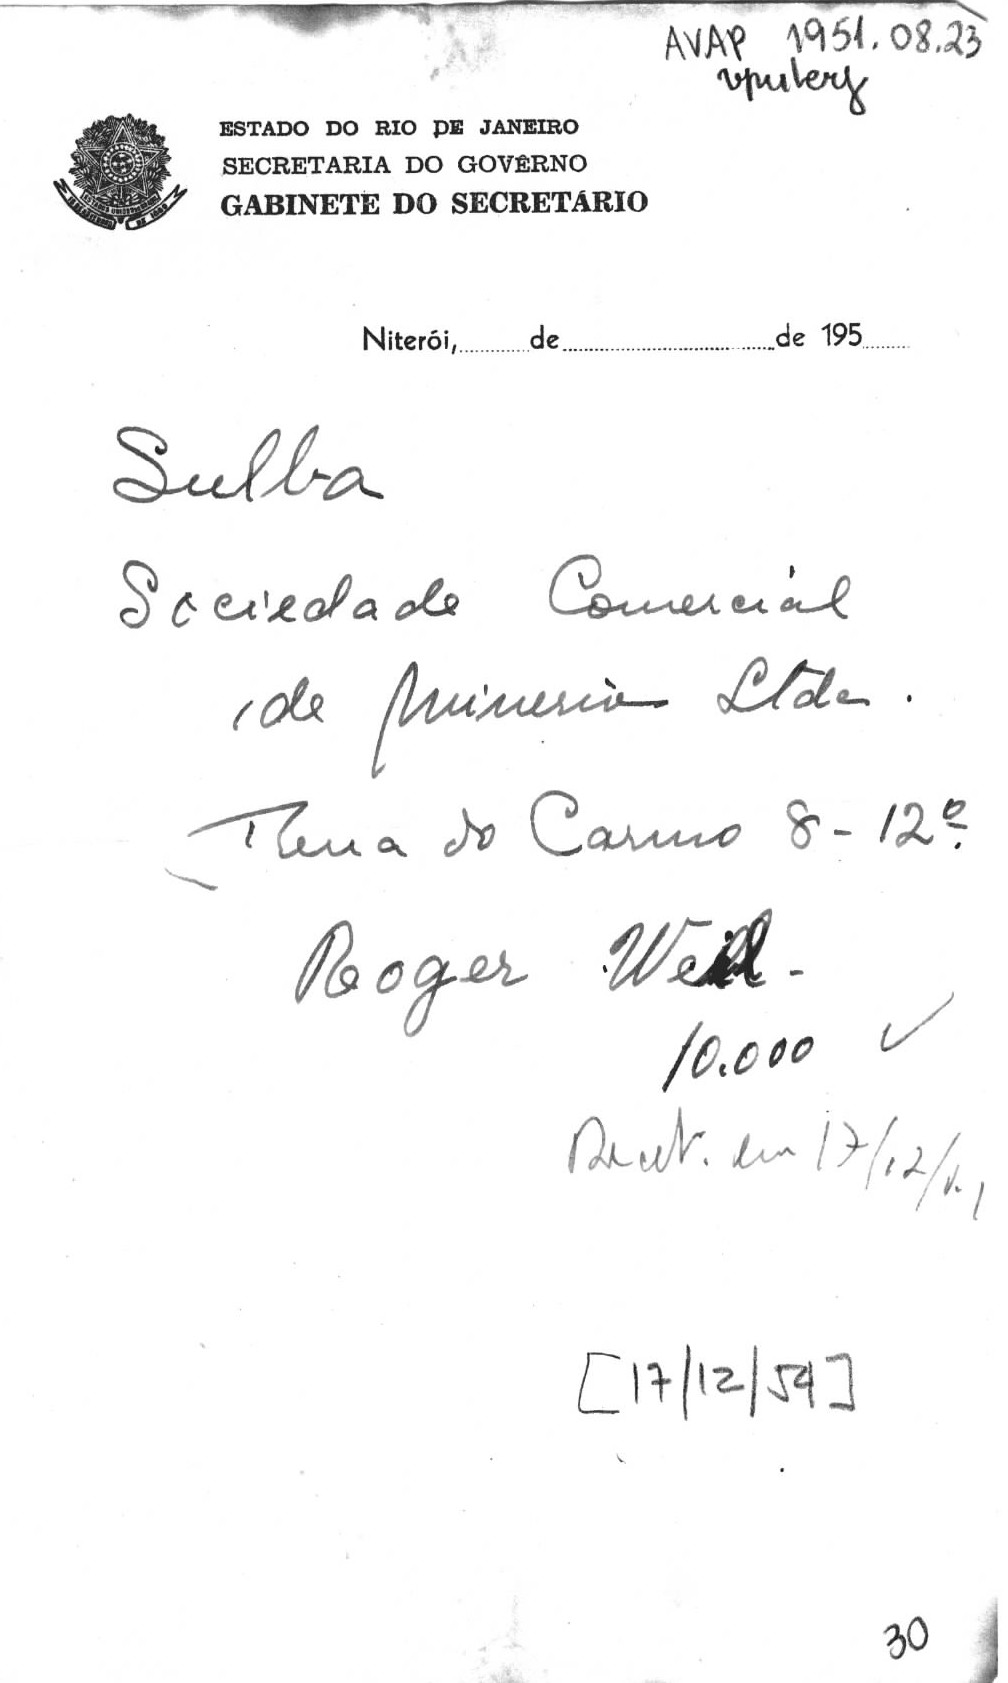 AVAP 1951.08.23
ESTADO DO RIO DE JANEIRO
SECRETARIA DO GOVÊRNO
GABINETE DO SECRETÁRIO
Niterói, de de 195
Sulba
Sociedade Comercial
de Minerios Ltda.
Rua do Carmo 8 - 12º.
Roger Weill -
10.000 ✓
em 17/12/
[17/12/54]
30